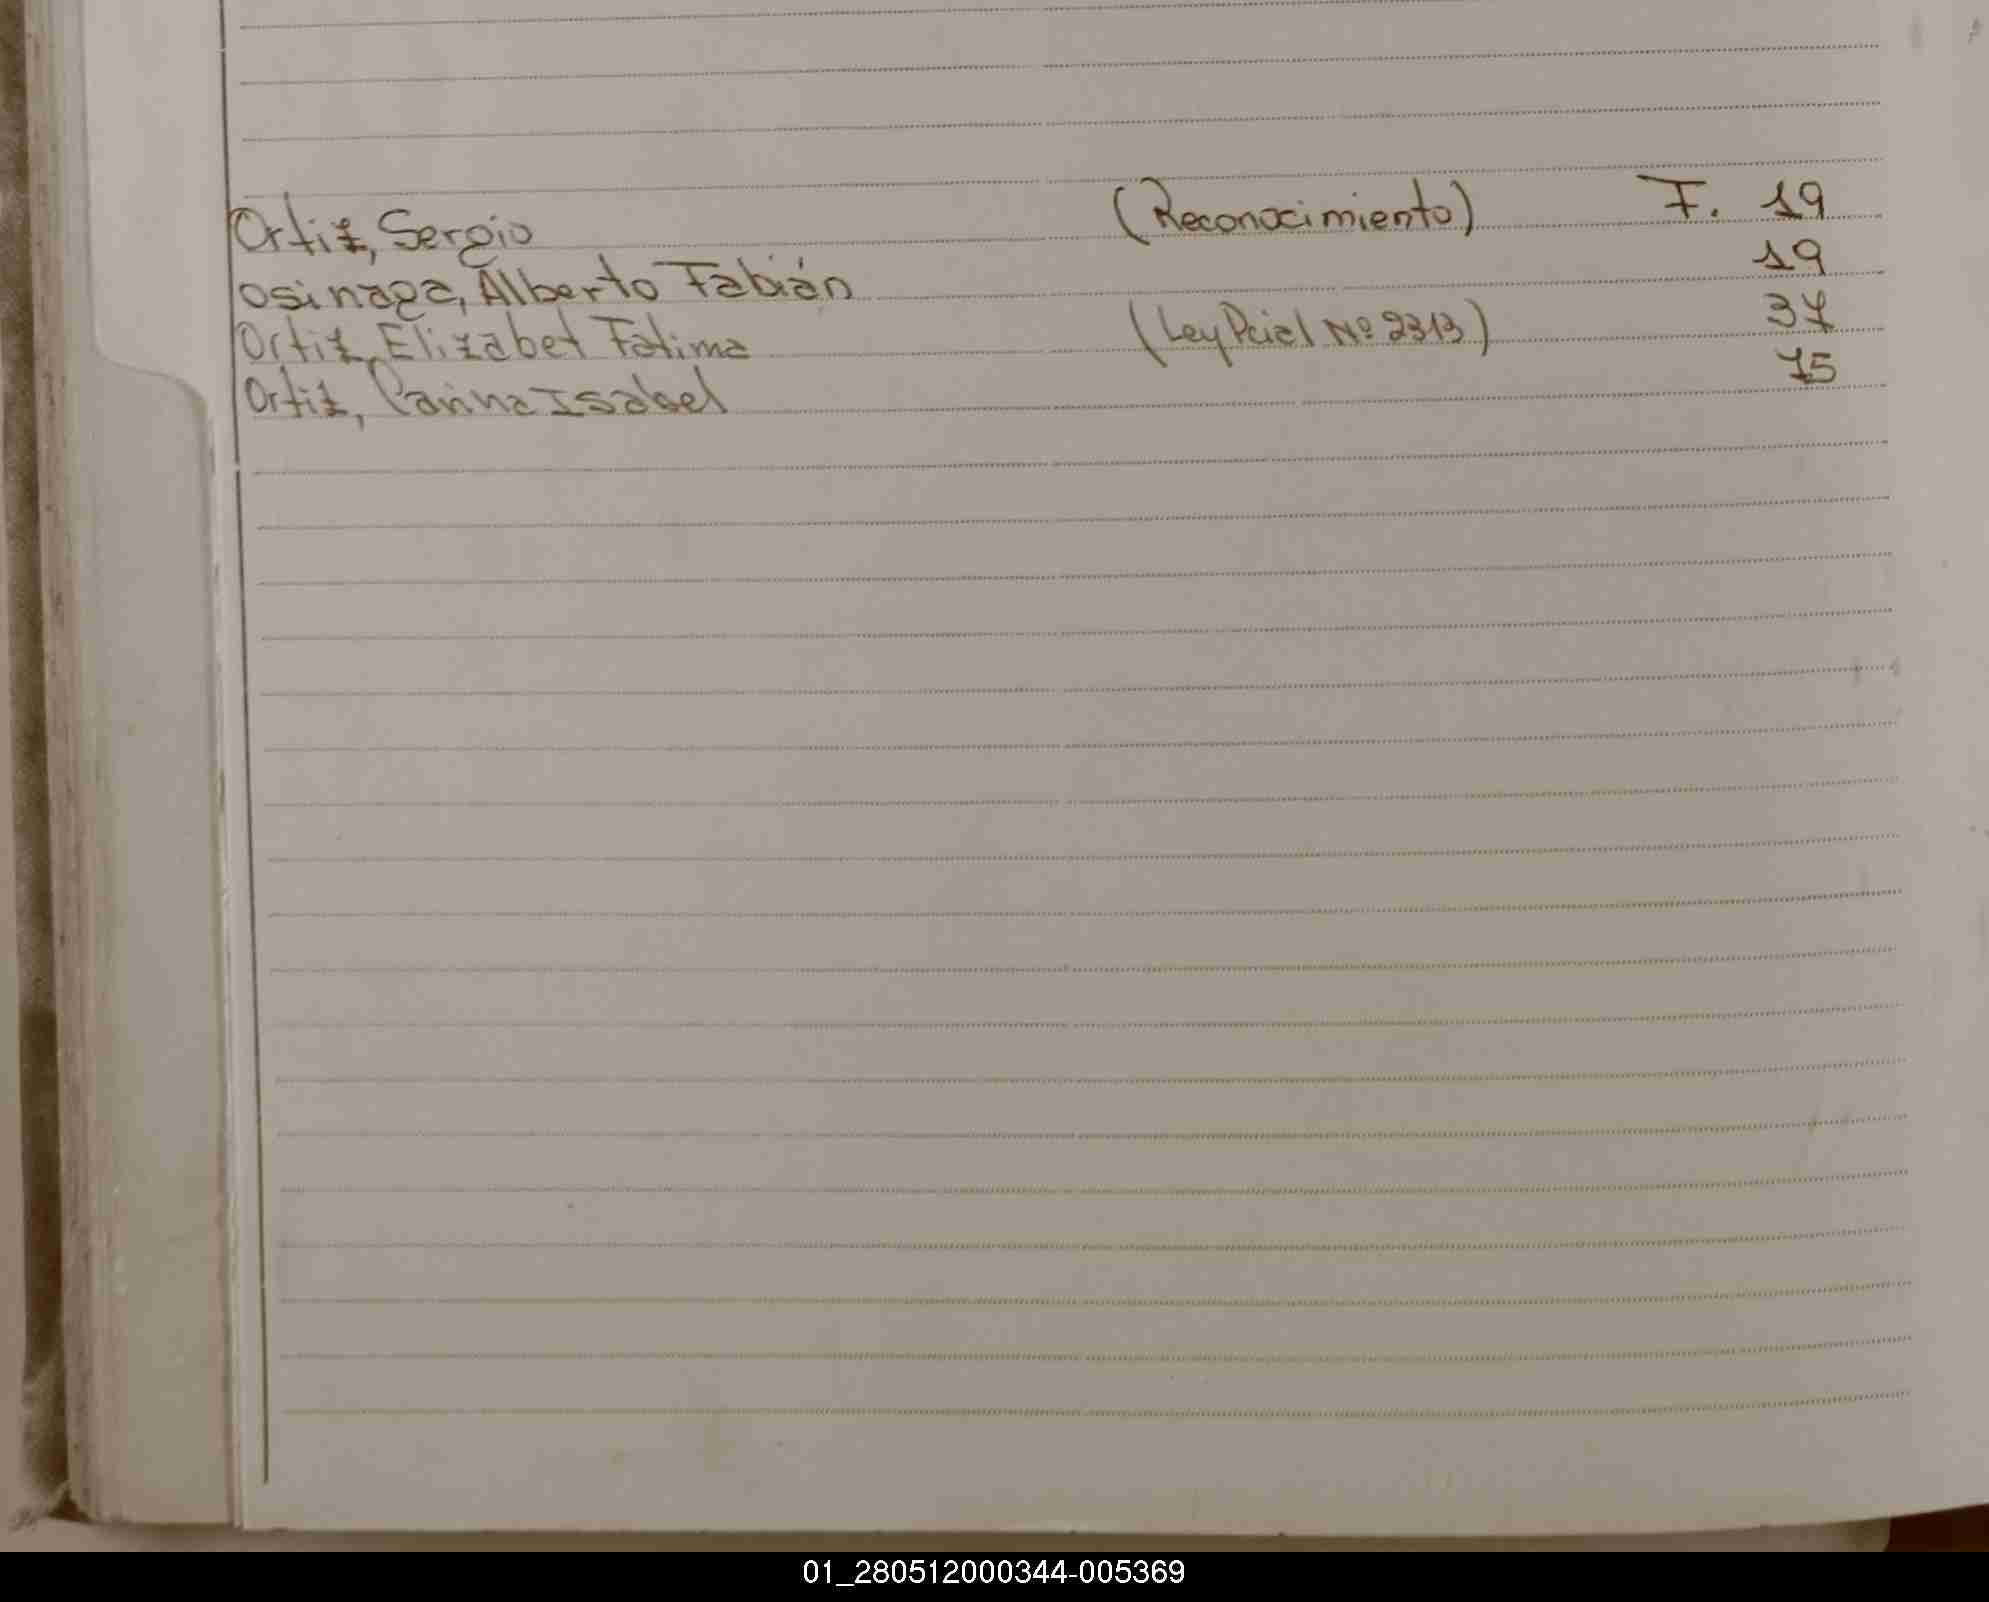 Ortiz, Sergio (Reconocimiento) F. 19
Osinaga, Alberto Fabián 19
Ortiz, Elizabet Fatima (Ley Pcial Nº 2313) 37
Ortiz, Carina Isabel 75
01_280512000344-005369